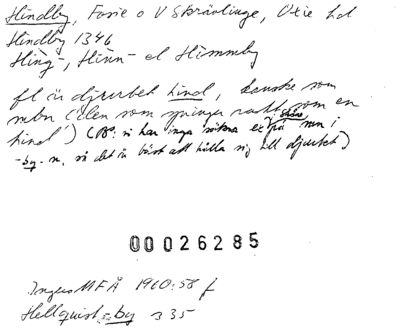 Hindby, Fosie o V Skrävlinge, Oxie hd
Hindby 1346
Hing-, Hinn- el Himmby
fl är djurbet hind, kanske som
mbn (den som springer rakt som en
hind') (OBS: vi har inga säkra ex på såna mbn i
-by-n, så det är bäst att hålla sig till djurbet)
00026285
Ingers MFÅ 1960:58 f
Hellquist -by s 35